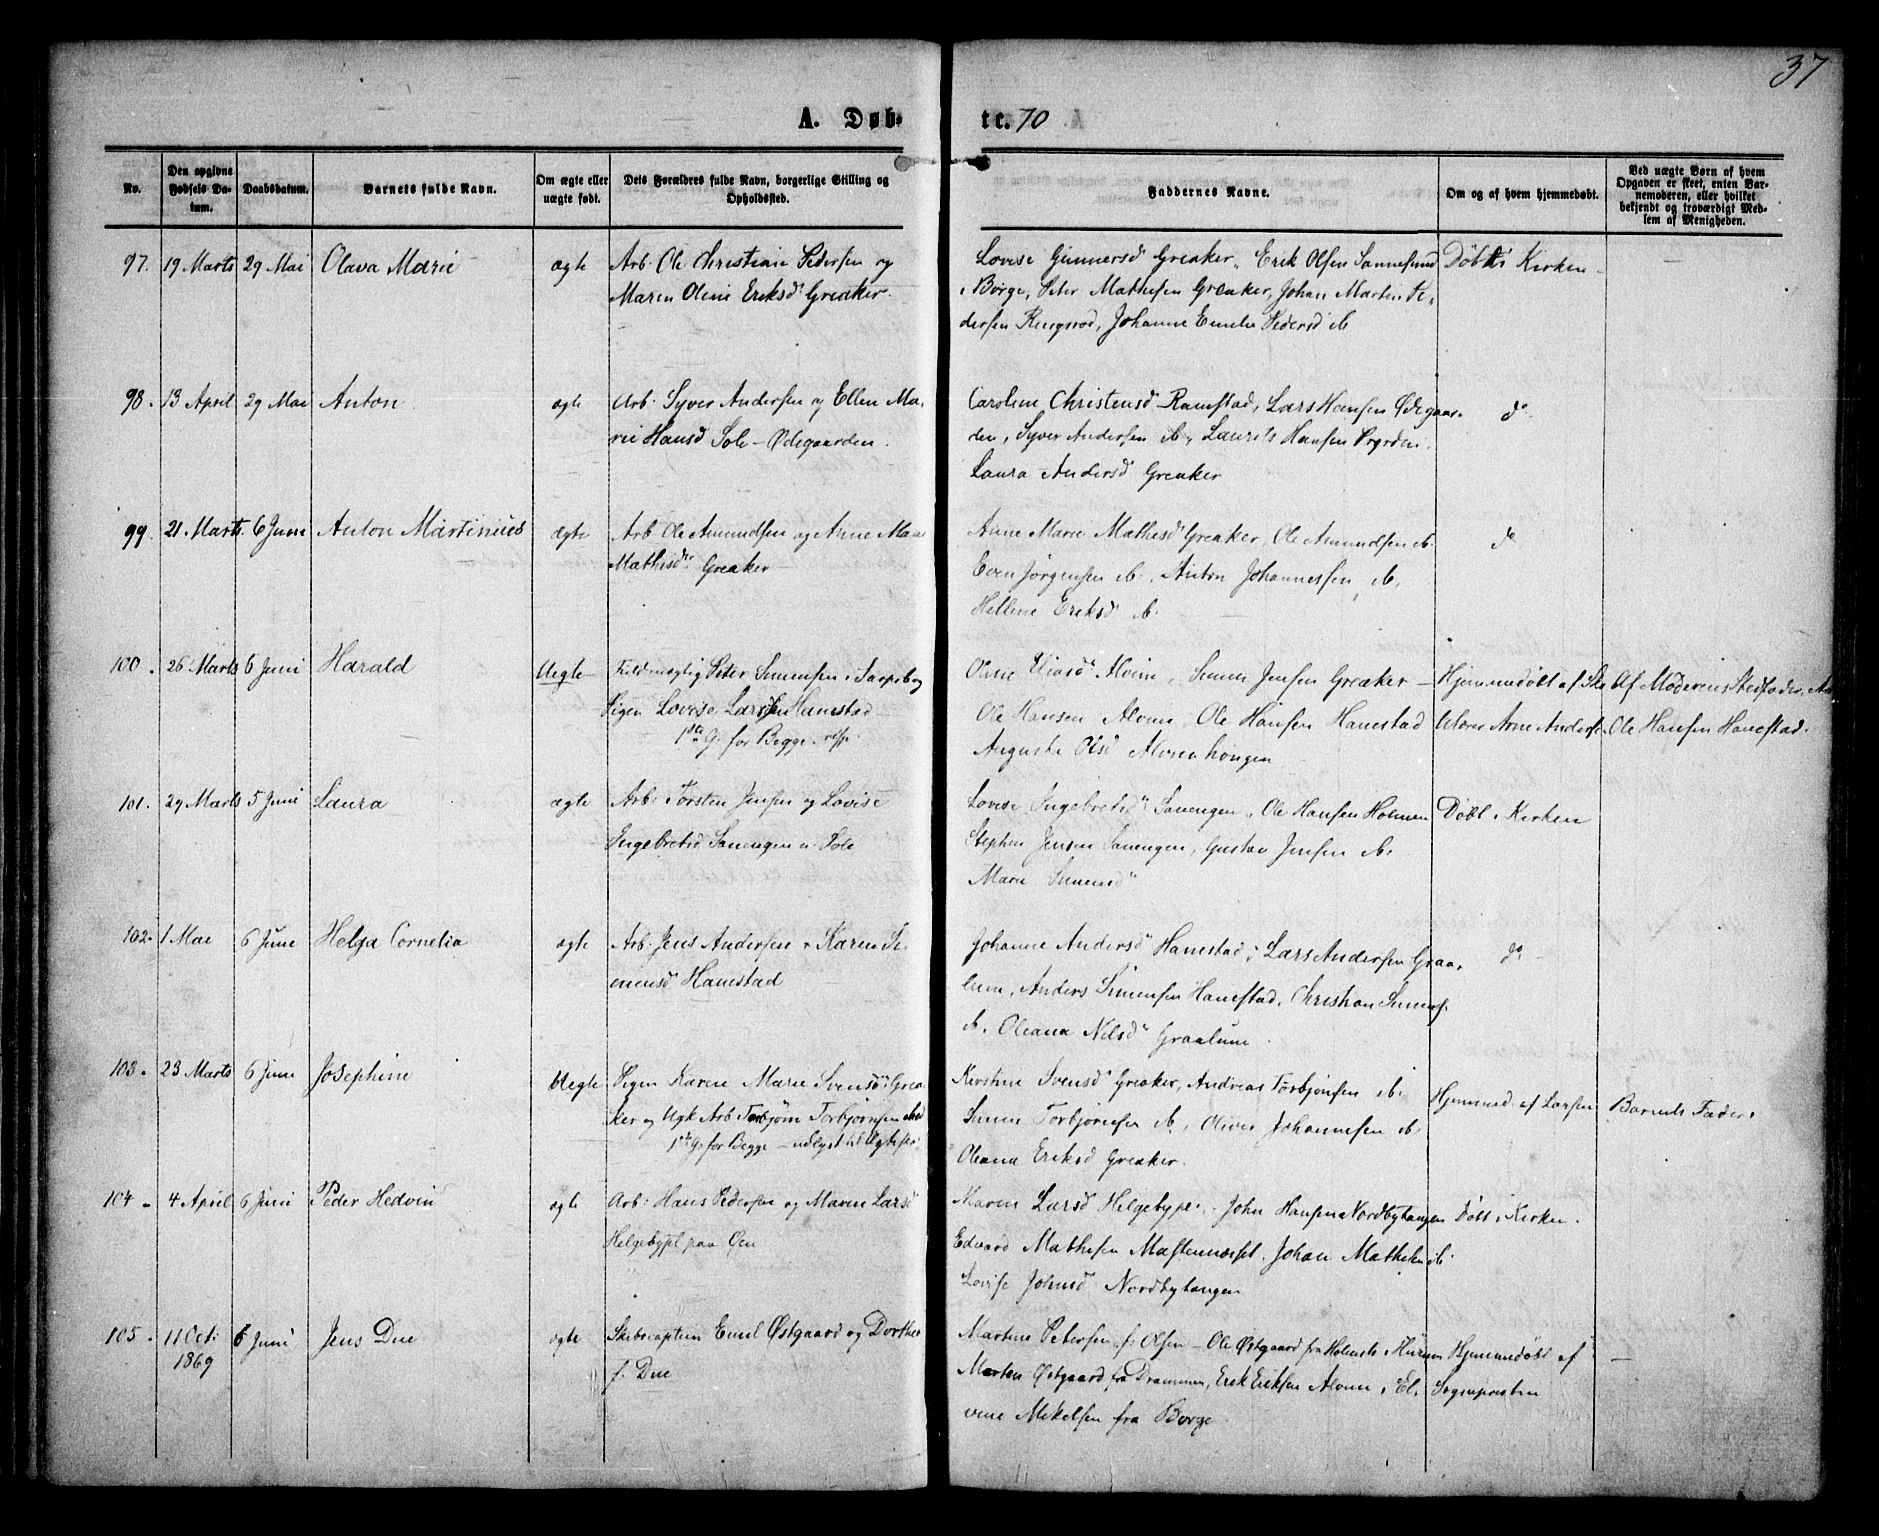 37
A. Døb-
te. 70
No.
Den opgivne Fødsels Datum.
Daabsdatum.
Barnets fulde Navn.
Om ægte eller uægte født.
Dets Forældres fulde Navn, borgerlige Stilling og Opholdssted.
Faddernes Navne.
Om og af hvem hjemmedøbt.
Ved uægte Børn af hvem Opgaven er skeet, enten Barnemoderen, eller hvilket bekjendt og troværdigt Medlem af Menigheden.
97. 19 Marts 29 Mai Olava Marie ægte Arb. Ole Christian Pedersen og
Maren Oline Eriksd Greaker.
Lovise Gunnersd Greaker, Erik Olsen Sannesund
i Borge, Peter Mathesen Greaker, Johan Martin Pe-
dersen Ringsrød, Johanne Emelie Pedersd ib
Døbt i Kirken
98. 13 April 29 Mai Anton ægte Arb. Syver Andersen og Ellen Ma-
rie Hansd Sole-Ødegaarden.
Caroline Christensd Ramstad, Lars Hansen Ødegaar-
den, Syver Andersen ib, Laurits Hansen
Laura Andersd Greaker
do
99. 21 Marts 6 Juni Anton Martinius ægte Arb Ole Amundsen og Anne Marie
Mathisd Greaker
Anne Marie Mathesd Greaker, Ole Amundsen ib.
Even Jørgensen ib., Anton Johannessen, ib.
Helline Eriksd ib.
do
100. 26 Marts 6 Juni Harald Uegte Fuldmægtig Peter Simensen i Sarpsborg
Pigen Lovise Larsen Hanestad
1ste G. for Begge resp.
Oline Eliasd Alvim, Simen Jensen Greaker
Ole Hansen Alvim, Ole Hansen Hanestad
Auguste Olsd Alvimhaugen
Hjemmedøbt af Sko
lelærer Arne Anders.
Af Moderens Stedfader,
Ole Hansen Hanestad.
101. 29 Marts 5 Juni Laura ægte Arb. Torsten Jensen og Lovise
Engebretsd Sanengen u. Sole
Lovise Ingebretsd Sanengen, Ole Hansen Holmen
Stephen Jensen Sanengen, Gustav Jensen ib.
Marie Simensd
Døbt i Kirken
102. 1 Mai 6 Juni Helga Cornelia ægte Arb. Jens Andersen & Karen Si-
mensd Hanestad
Johanne Andersd Hanestad, Lars Andersen Graa-
lum, Anders Simensen Hanestad, Christian Simens.
ib. Oleana Nilsd Graalum.
do
103. 23 Marts 6 Juni Josephine Uegte Pigen Karen Marie Svensd Grea
ker og Ugk Arb Torbjørn Torbjørnsen ibid
1ste G. for Begge - udlyst til Ægtesk.
Kirstine Svensd Greaker, Andreas Torbjørnsen ib.
Simen Torbjørnsen ib., Oliver Johannesen ib
Oleana Eriksd Greaker.
Hjemmed. af Larsen
Barnets Fader.
104. 4 April 6 Juni Peder Hedvin ægte Arb. Hans Pedersen og Maren Larsd
Helgebypl. paa Øen
Maren Larsd Helgebypl., John Hansen Nordbytangen
Edvard Mathesen, Johan Mathesen ib.
Lovise Johnsd Nordbytangen
Døbt i Kirken.
105. 11 Oct: 6 Juni Jens Due ægte Skibscaptein Emil Østgaard og Dorthea
1869 f. Due
Martine Petersen f. Olsen - Ole Østgaard fra Holmsb. i Hurum
Morten Østgaard fra Drammen, Erik Eriksen Alvim, El-
vine Mikelsen fra Borge.
Hjemmedøbt af
Sognepresten
—